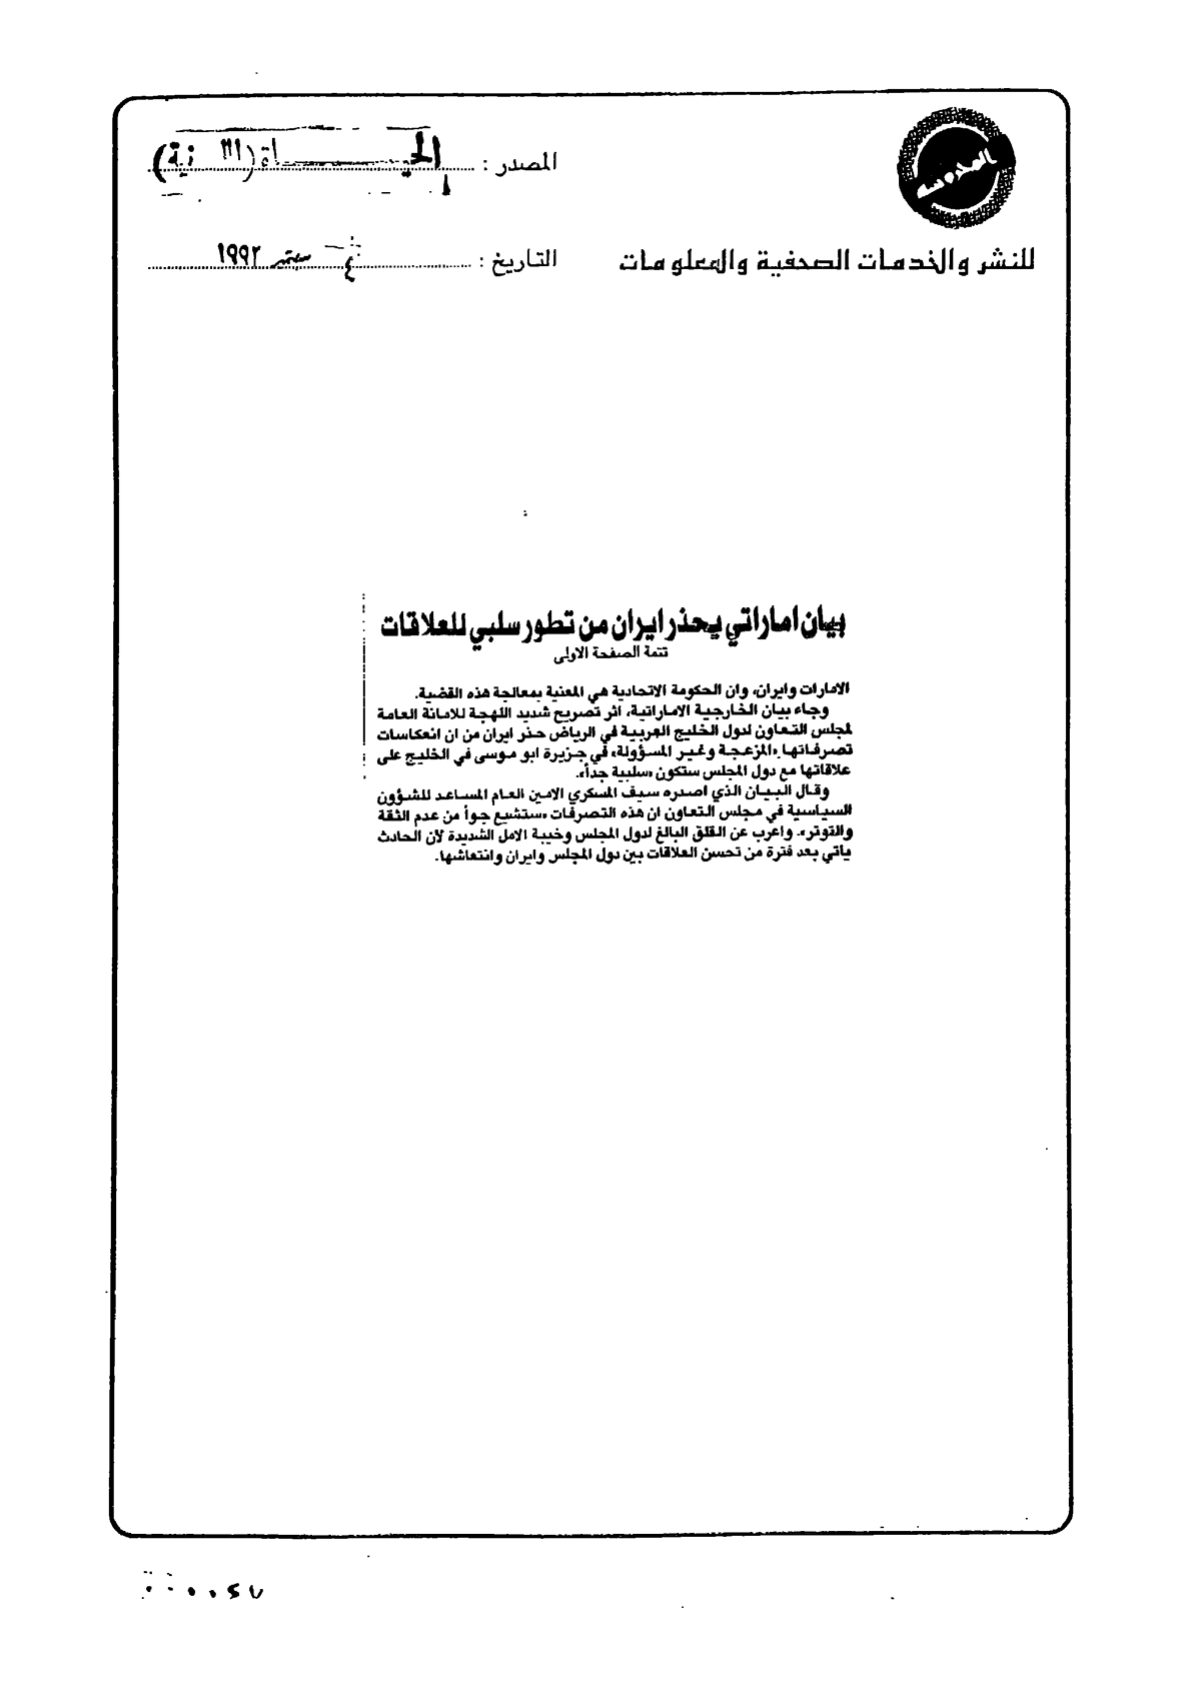 المصدر : الحيـــــاة
التاريخ : ٤ سبتمبر ١٩٩٢
للنشر والخدمات الصحفية والمعلومات
بيان اماراتي يحذر ايران من تطور سلبي للعلاقات
تتمة الصفحة الاولى
الامارات وايران، وان الحكومة الاتحادية هي المعنية بمعالجة هذه القضية.
وجاء بيان الخارجية الاماراتية، اثر تصريح شديد اللهجة للامانة العامة
لمجلس التعاون لدول الخليج العربية في الرياض حذر ايران من ان انعكاسات
تصرفاتها «المزعجة وغير المسؤولة» في جزيرة ابو موسى في الخليج على
علاقاتها مع دول المجلس ستكون «سلبية جداً».
وقال البيان الذي اصدره سيف المسكري الامين العام المساعد للشؤون
السياسية في مجلس التعاون ان هذه التصرفات «ستشيع جواً من عدم الثقة
والتوتر». واعرب عن القلق البالغ لدول المجلس وخيبة الامل الشديدة لأن الحادث
ياتي بعد فترة من تحسن العلاقات بين دول المجلس وايران وانتعاشها.